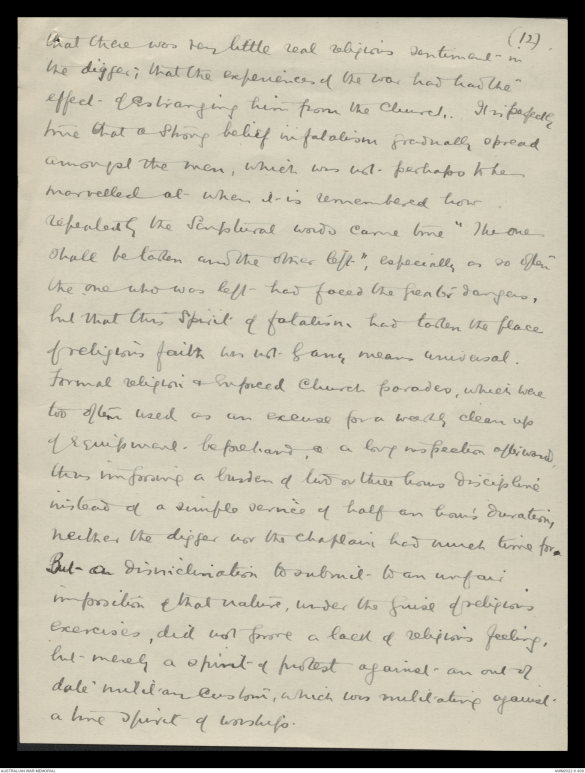 (12).
that there was very little real religious sentiment in
the digger; that the experiences of the war had had the
effect of estranging him from the Church. It is perfectly
true that a strong belief in fatalism gradually spread
amongst the men, which was not perhaps to be
marvelled at when it is remembered how
repeatedly the Scriptural words came true "The one
shall be taken and the other left", especially as so often
the one who was left had faced the greater dangers,
but that this spirit of fatalism had taken the place
of religious faith was not by any means universal.
Formal religion & enforced Church parades, which were
too often used as an excuse for a weekly clean up
of equipment beforehand, & a long inspection afterward,
thus imposing a burden of two or three hours discipline
instead of a simple service of half an hour's duration,
neither the digger nor the chaplain had much time for.
But a disinclination to submit to an unfair
imposition of that nature, under the guise of religious
exercises, did not prove a lack of religious feeling,
but merely a spirit of protest against an out of
date military custom, which was militating against
a true spirit of worship.
AUSTRALIAN WAR MEMORIAL